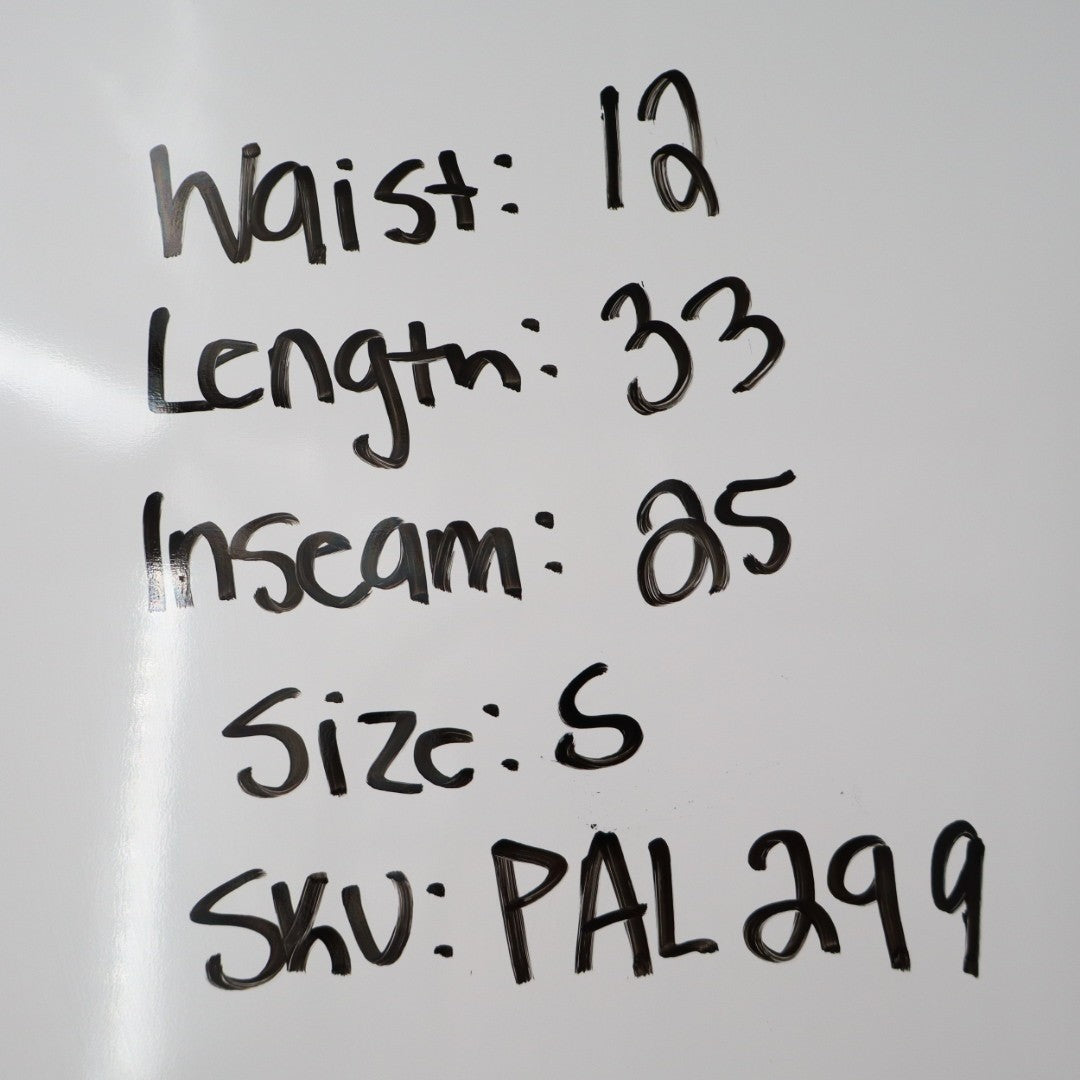 Waist: 12
Length: 33
Inseam: 25
Size: S
SKU: PAL299